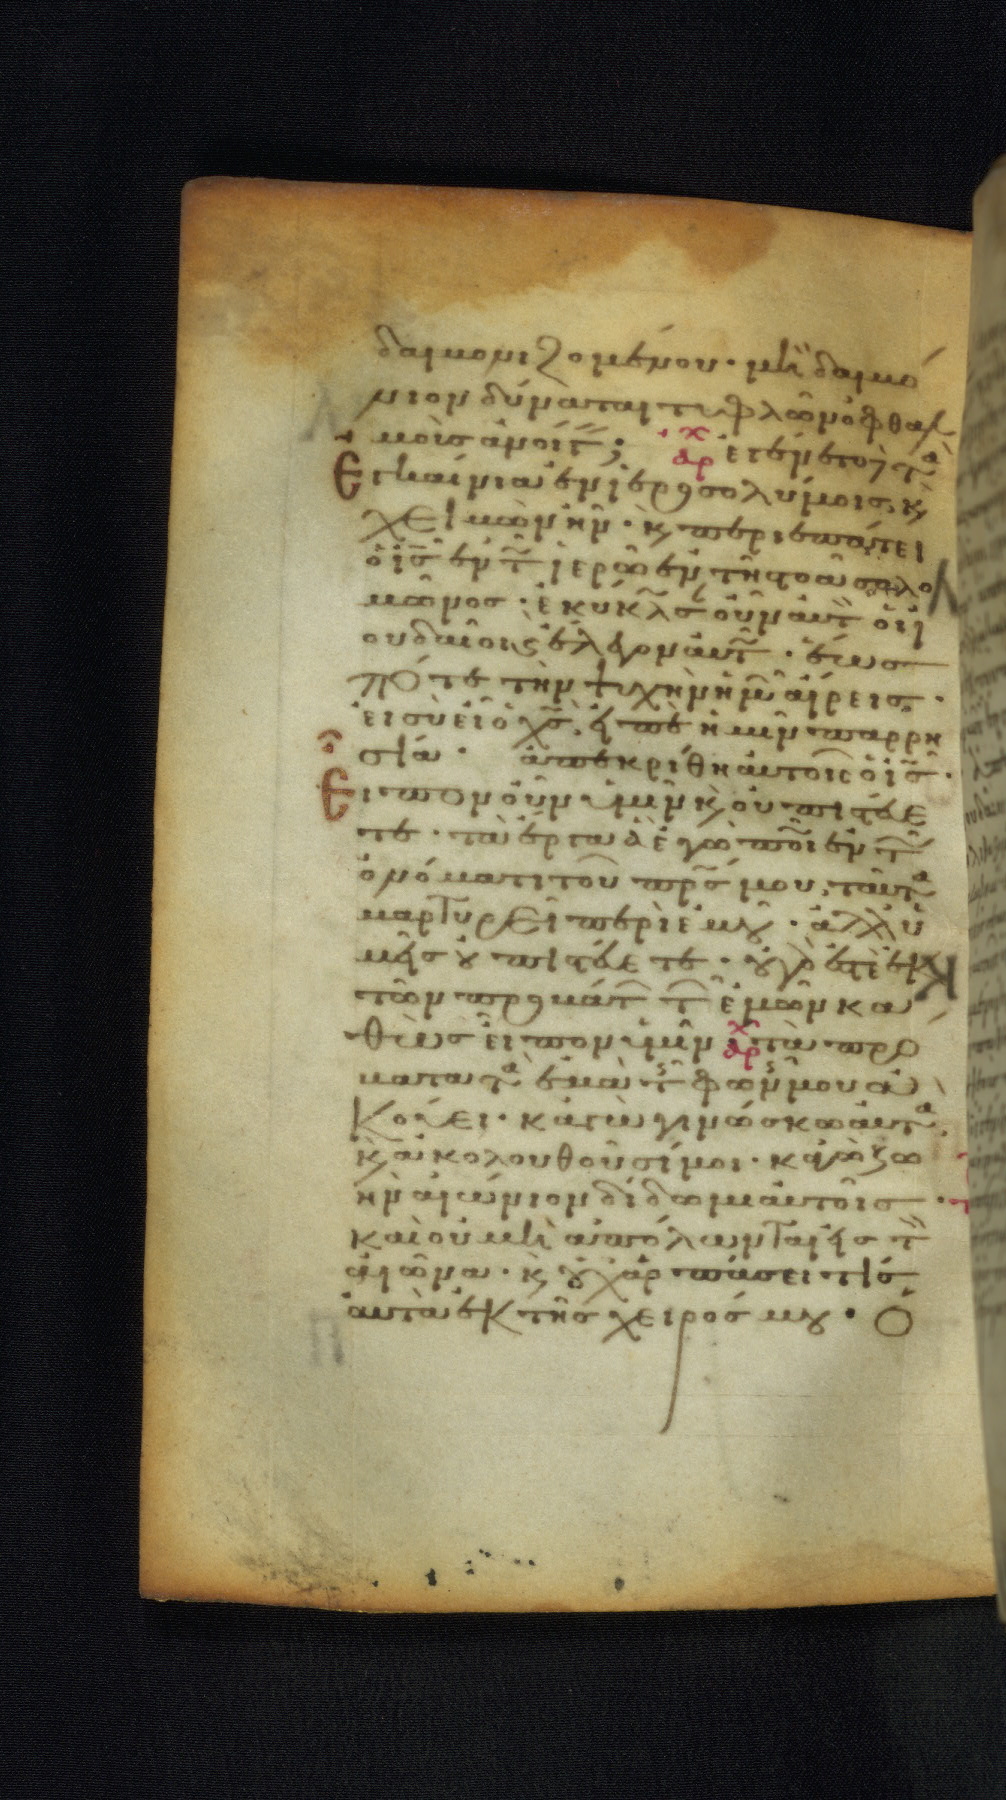 δαιμονιζομένου· μὴ δαιμό
νιον δύναται τυφλῶν ὀφθαλ
μοὺς ἀνοῖξ; ἐγένετο τὰ
Ἐγκαίνια ἐν ἱεροσολύμοις, κ̀
χειμὼν ἦν· κ̀ περιεπάτει
ὁ ις̅ ἐν τ ἱερῶ ἐν τῆ στοᾶ σολο
μῶνος· ἐκύκλς οὖν αὐτ οἱ ἰ
ουδαῖοι κ̀ ἔλεγον αὐτ· ἕως
πότε τὴν ψυχὴν ἡμῶν αἴρεις·
εἰ σὺ εἶ ὁ χς̅, εἰπὲ ἡμῖν παρρη
σία· ἀπεκρίθη αὐτοῖς ὁ ις̅·
Εἶπον ὑμῖν κ̀ οὐ πιστεύε
τε· τὰ ἔργα ἃ ἐγὼ ποιῶ ἐν τ
ὀνόματι τοῦ πρς̅ μου, ταῦτα
μαρτυρεῖ περὶ ἐμοῦ· ἀλλ' ὑ
μεῖς οὐ πιστεύετε· οὐ γάρ ἐστὲ ἐκ
τῶν προβάτ τ ἐμῶν κα
θὼς εἶπον ὑμῖν τὰ πρό
βατα τὰ ἐμὰ τς φωνς μου ἀ
κούει· κἀγὼ γινώσκω αὐτὰ,
κ̀ ἀκολουθοῦσί μοι· κἀγὼ ζω
ὴν αἰώνιον δίδωμι αὐτοῖς·
καὶ οὐ μὴ ἀπόλωνται εἰς τ
αἰῶνα· κ̀ οὐχ ἁρπάσει τις
αὐτὰ ἐκ τῆς χειρός μου· Ὁ